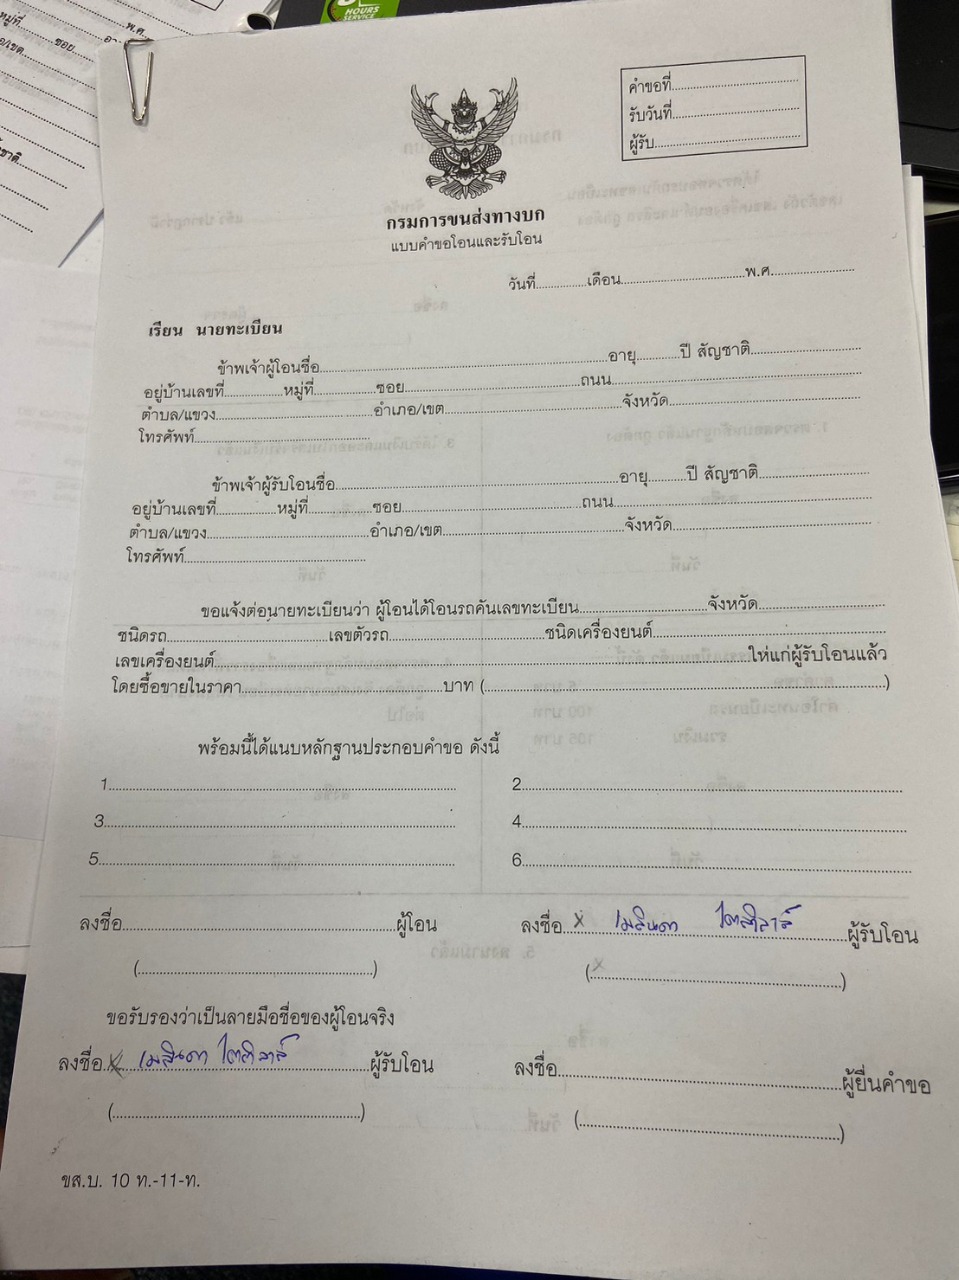 HOURS
SERVICE
คำขอที่
รับวันที่
ผู้รับ
กรมการขนส่งทางบก
แบบคำขอโอนและรับโอน
วันที่ เดือน พ.ศ.
เรียน นายทะเบียน
ข้าพเจ้าผู้โอนชื่อ อายุ ปี สัญชาติ
อยู่บ้านเลขที่ หมู่ที่ ซอย ถนน
ตำบล/แขวง อำเภอ/เขต จังหวัด
โทรศัพท์
ข้าพเจ้าผู้รับโอนชื่อ อายุ ปี สัญชาติ
อยู่บ้านเลขที่ หมู่ที่ ซอย ถนน
ตำบล/แขวง อำเภอ/เขต จังหวัด
โทรศัพท์
ขอแจ้งต่อนายทะเบียนว่า ผู้โอนได้โอนรถคันเลขทะเบียน จังหวัด
ชนิดรถ เลขตัวรถ ชนิดเครื่องยนต์
เลขเครื่องยนต์ ให้แก่ผู้รับโอนแล้ว
โดยซื้อขายในราคา บาท ( )
พร้อมนี้ได้แนบหลักฐานประกอบคำขอ ดังนี้
1 2
3 4
5 6
ลงชื่อ ผู้โอน ลงชื่อ x เมลินดา ผู้รับโอน
( ) ( x )
ขอรับรองว่าเป็นลายมือชื่อของผู้โอนจริง
ลงชื่อ x เมลินดา ผู้รับโอน ลงชื่อ ผู้ยื่นคำขอ
( ) ( )
ขส.บ. 10 ท.-11-ท.